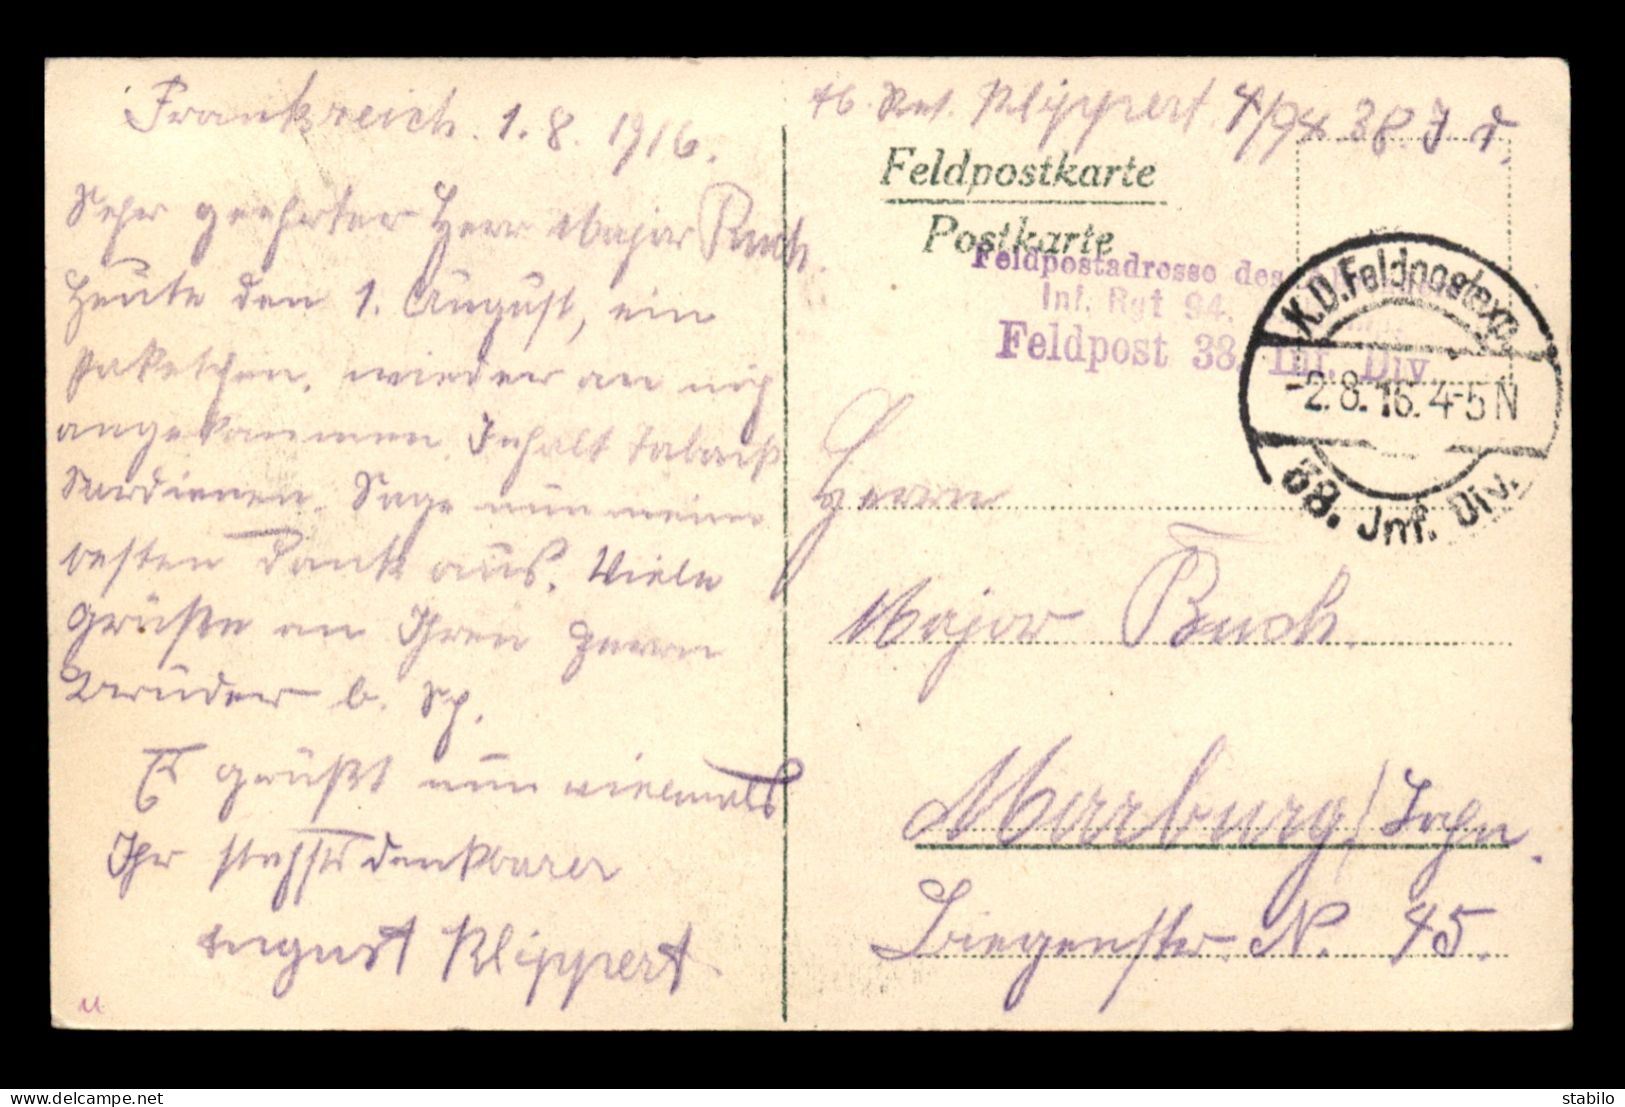 Frankreich. 1. 8. 1916.
Sehr geehrter Herr Major Buch.
Heute den 1. August, ein
Paketchen, wieder an mich
angekommen. Inhalt Taback
Sardienen. Sage nun meinen
besten Dank aus. Viele
Grüße an Ihren Herrn
Brüder b. Sp.
Es grüßt nun vielmals
Ihr stehst's dankbarer
August Klippert
Klippert 4/94 38. J. D.
Feldpostkarte
Postkarte
Feldpostadresse des
Inf. Rgt 94.
Feldpost 38. Inf. Div
K.D. Feldpostexp.
-2.8.16. 4-5 N
38. Jnf. Div.
Herrn
Major Buch.
Marburg/Lahn.
Biegenstr. N. 45.
delcampe.net
stabilo